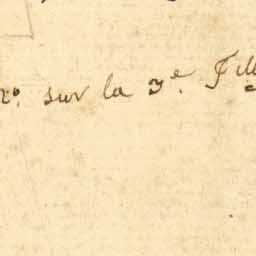 2º. sur la 3.e Fill